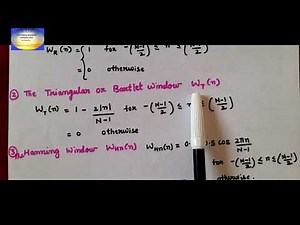 W_R(n) = { 1 for -(N-1/2) ≤ n ≤ (N-1/2)
= 0 otherwise
② The Triangular or Bartlet window W_T(n)
W_T(n) = 1 - 2|n|/N-1 for -(N-1/2) ≤ n ≤ (N-1/2)
= 0 otherwise
③ The Hanning Window W_Hn(n) W_Hn(n) = 0. 0.5 cos 2πn/N-1
for -(N-1/2) ≤ n ≤ (N-1/2)
otherwise.